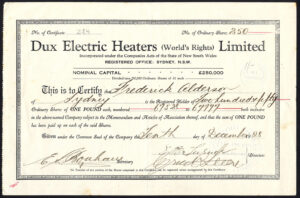 No. of Certificate 284 No. of Ordinary Shares 250
Dux Electric Heaters (World's Rights) Limited
Incorporated under the Companies Acts of the State of New South Wales
REGISTERED OFFICE: SYDNEY, N.S.W.
NOMINAL CAPITAL £250,000
This is to Certify that Frederick Alderson
of Sydney is the Registered Holder of Two hundred & fifty
Ordinary Shares of ONE POUND each, numbered to inclusive in the
above-named Company subject to the Memorandum and Articles of Association thereof, and that the sum of ONE POUND
has been paid up on each of the Shares.
Given under the Common Seal of the Company this Tenth day of December
Directors
Secretary